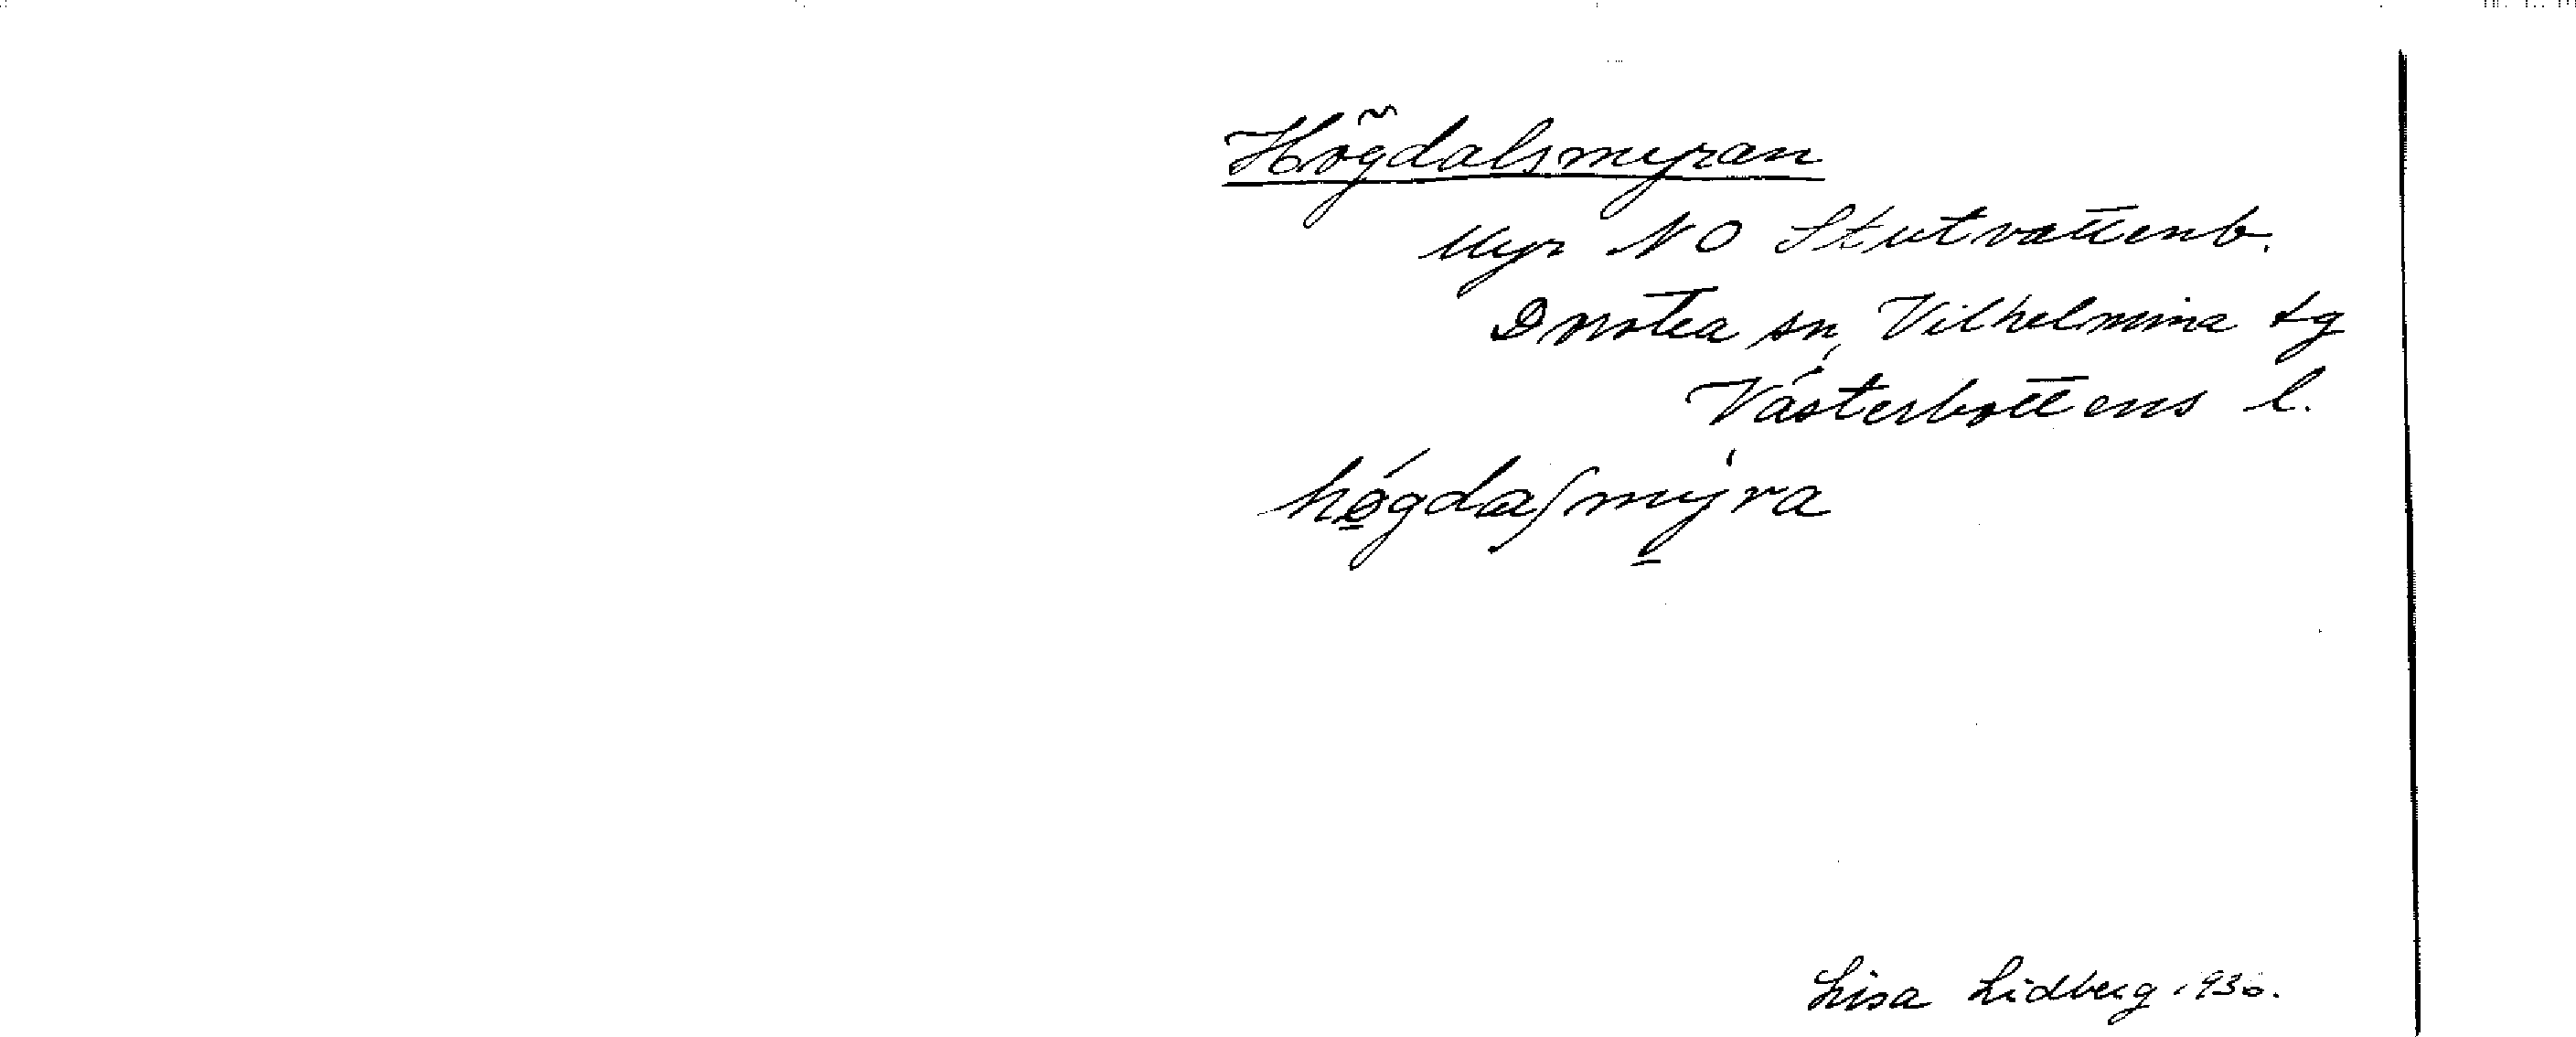 Högdalsmyran
Myr NO Stutvattenb.
Dorotea sn, Vilhelmina tg
Västerbottens l.
högdaſmyra
Lisa Lidberg 1930.